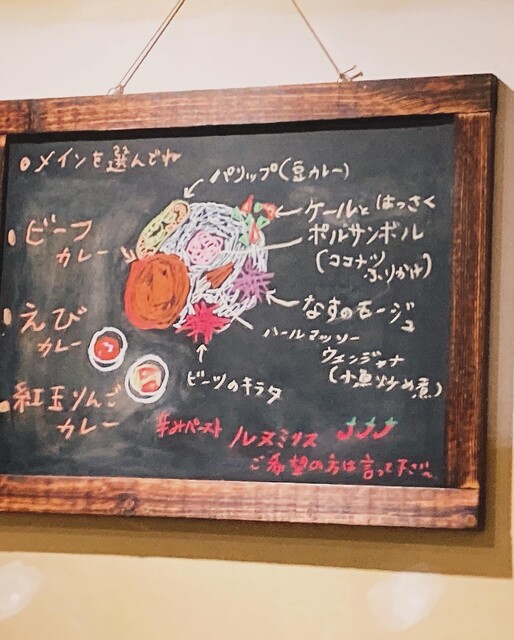 ・メインを選んでね
・ビーフ
カレー
・えび
カレー
・紅玉りんご
カレー
パリップ(豆カレー)
ケールと はっさく
ポルサンボル
(ココナツ
ふりかけ)
なすのモージュ
ハールマッソー
ウェンジャナ
(小魚炒め煮)
ビーツのキラタ
辛みペースト ルヌミリス
ご希望の方は言って下さい